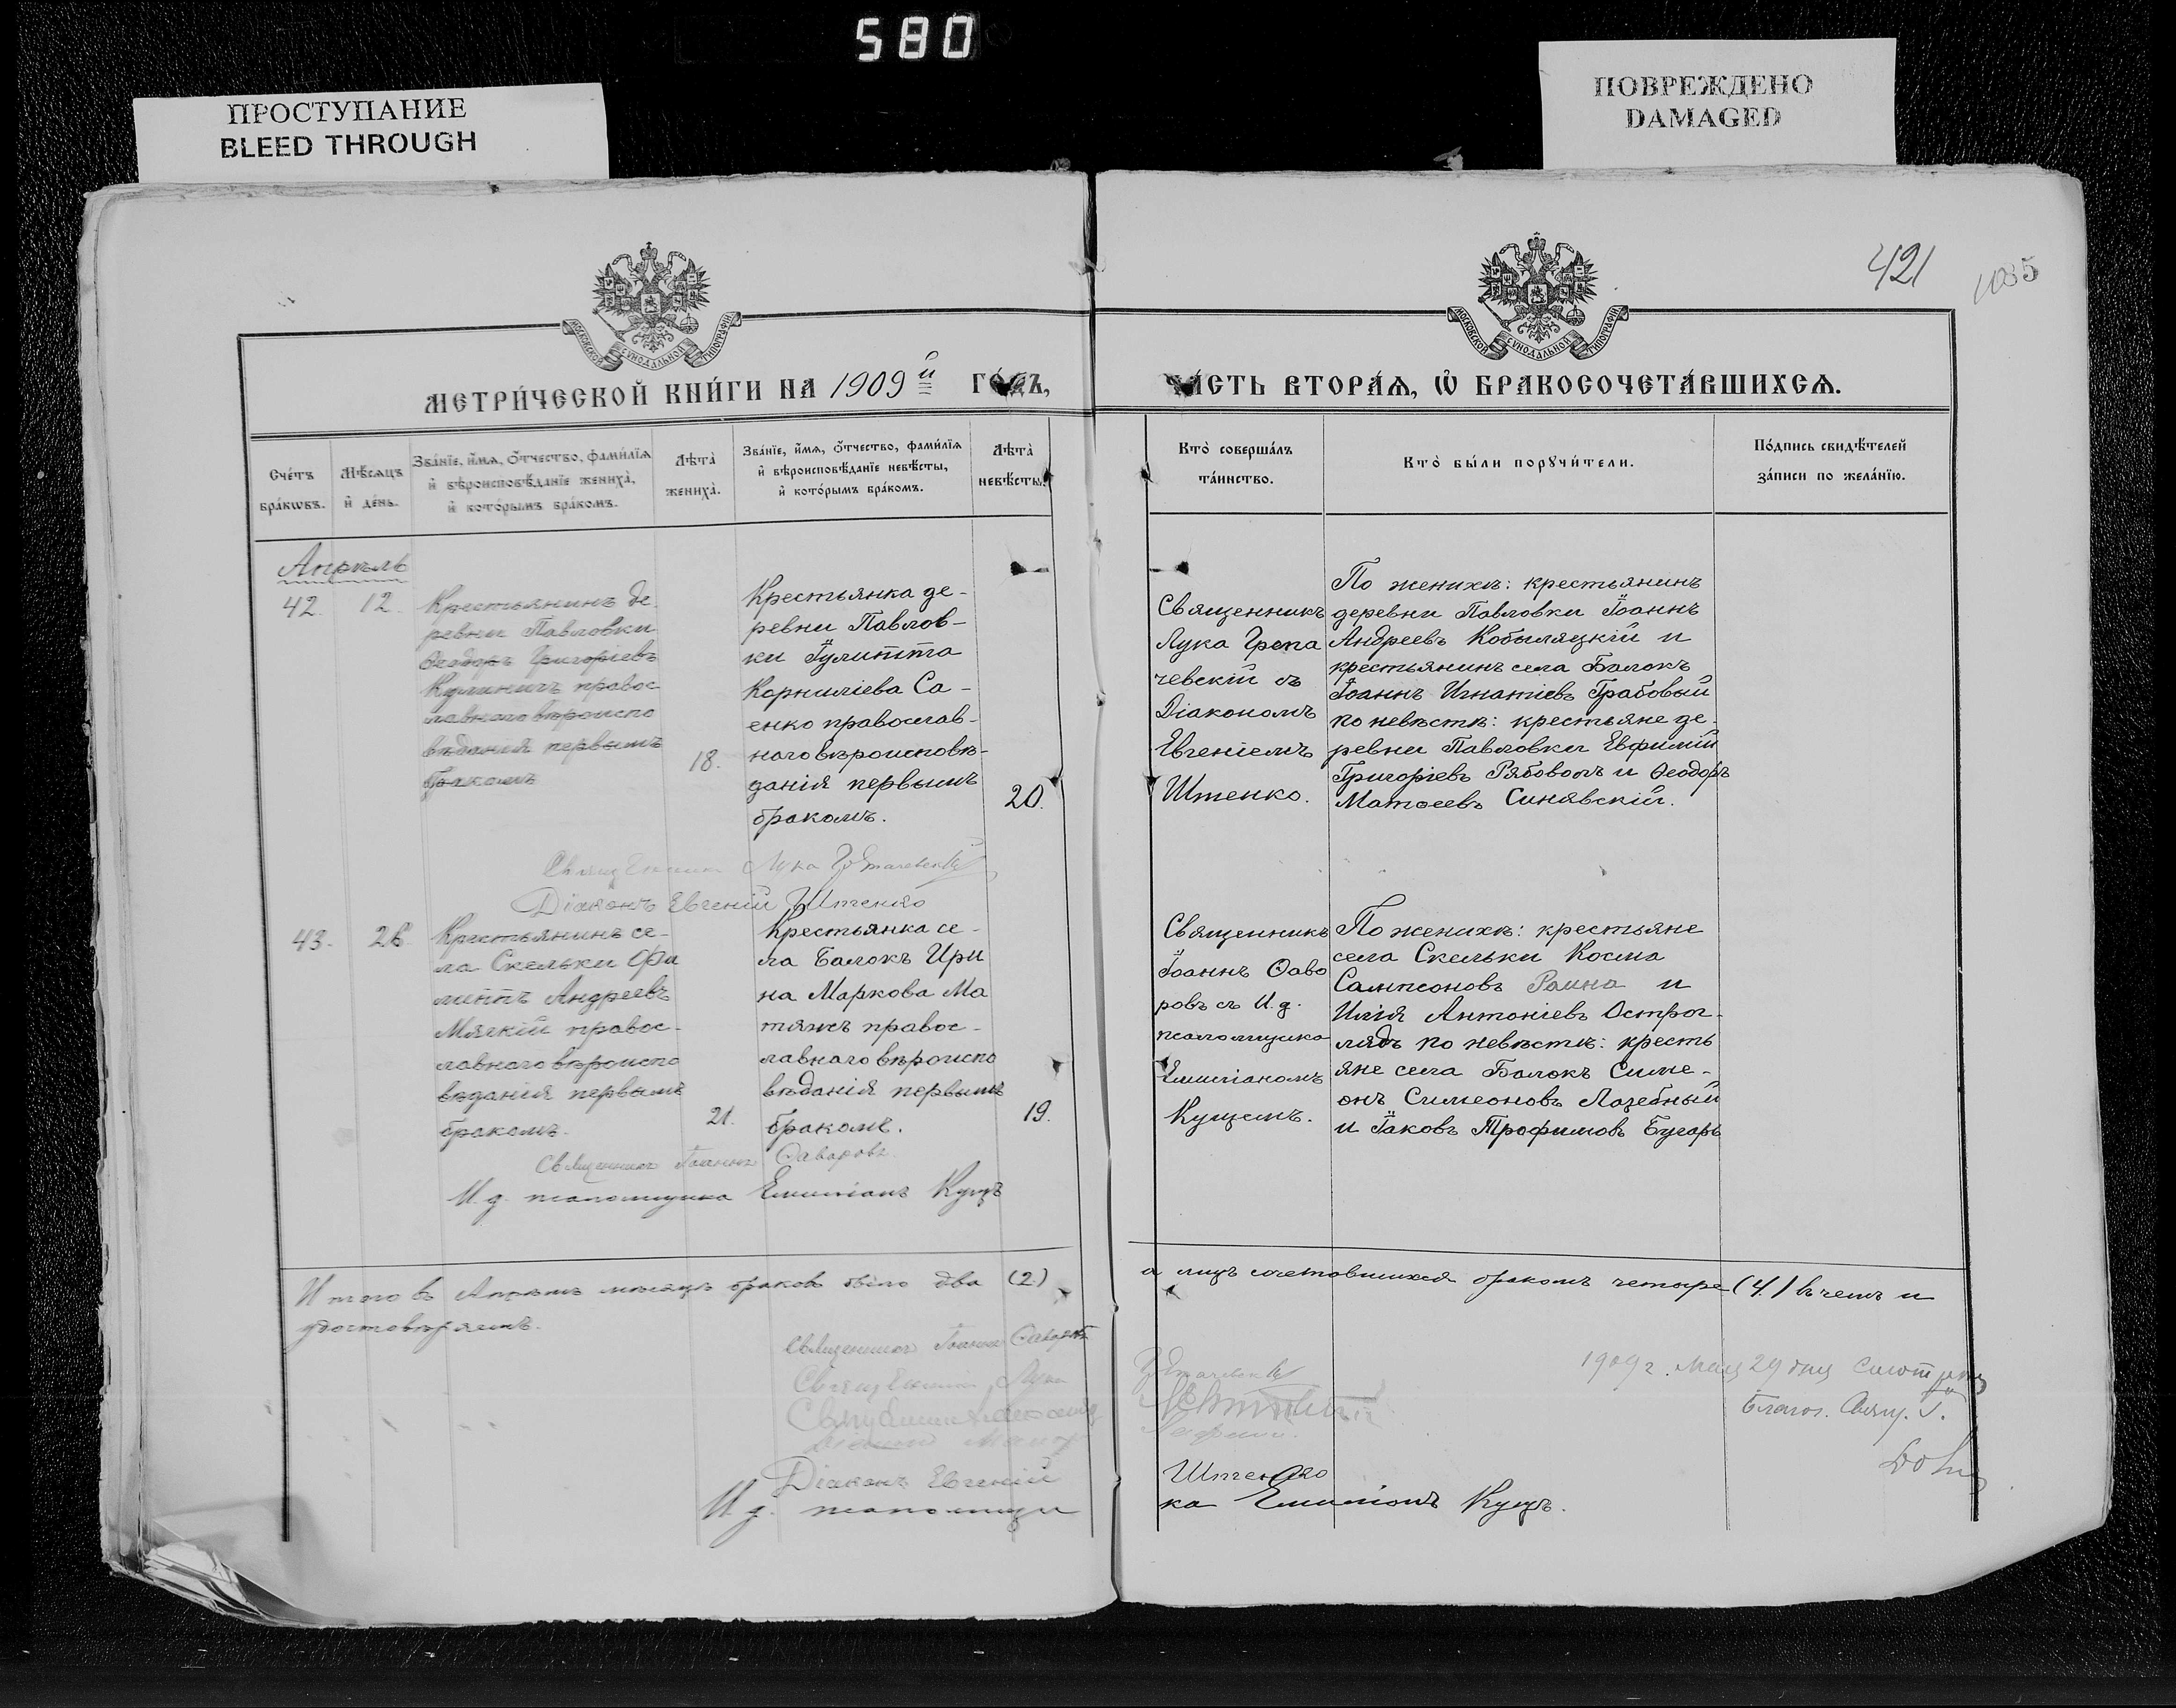 580
ПРОСТУПАНИЕ
BLEED THROUGH
ПОВРЕЖДЕНО
DAMAGED
421
1035
МОСКОВСКОЙ СУНОДАЛЬНОЙ ТИПОГРАФІИ
МОСКОВСКОЙ СУНОДАЛЬНОЙ ТИПОГРАФІИ
МЕТРИ́ЧЕСКОЙ КНИ́ГИ НА 1909й ГО́ДЪ,
ЧА́СТЬ ВТОРА́Ѧ, Ѡ҆ БРАКОСОЧЕТА́ВШИХСѦ.
Сче́тъ
бра́кѡвъ.
Мѣ́сѧцъ
и҆ де́нь.
Зва́нїе, и҆́мѧ, о҆́тчество, фами́лїѧ
и҆ вѣроисповѣ́данїе жениха̀,
и҆ кото́рымъ бра́комъ.
Лѣта̀
жениха̀.
Зва́нїе, и҆́мѧ, о҆́тчество, фами́лїѧ
и҆ вѣроисповѣ́данїе невѣ́сты,
и҆ кото́рымъ бра́комъ.
Лѣта̀
невѣ́сты.
Кто̀ соверша́лъ
та́инство.
Кто̀ бы́ли порꙋчи́тели.
По́дпись свидѣ́телей
за́писи по жела́нїю.
Апрѣль
42.
12.
Крестьянинъ де-
ревни Павловки
Ѳеодоръ Григоріевъ
Кулиничъ правос
лавнаго вѣроиспо
вѣданія первымъ
бракомъ
18.
Крестьянка де-
ревни Павлов-
ки Іулитта
Корниліева Са-
енко православ-
наго вѣроисповѣ-
данія первымъ
бракомъ.
20.
Священникъ
Лука Грепа
чевскій съ
Діакономъ
Евгеніемъ
Штенко.
По женихѣ: крестьянинъ
деревни Павловки Іоаннъ
Андреевъ Кобыляцкій и
крестьянинъ села Балокъ
Іоаннъ Игнатіевъ Грабовый
по невѣстѣ: крестьяне де-
ревни Павловки Евфимій
Григоріевъ Рябоволъ и Ѳеодоръ
Матѳеевъ Синявскій.
Лука
Діаконъ Евгеній Штенко
43.
26.
Крестьянинъ се-
ла Скельки Фи
липпъ Андреевъ
Мягкій правос-
лавнаго вѣроиспо
вѣданія первымъ
бракомъ.
21.
Крестьянка се-
ла Балокъ Ири
на Маркова Ма
тяжъ правос-
лавнаго вѣроиспо
вѣданія первымъ
бракомъ.
19.
Священникъ
Іоаннъ Ѳаво
ровъ съ И. д.
псаломщика
Емиліаномъ
Кущемъ.
По женихѣ: крестьяне
села Скельки Косма
Сампсоновъ Раина и
Илія Антоніевъ Острог-
лядъ по невѣстѣ: кресть
яне села Балокъ Симе-
онъ Симеоновъ Лазебный
и Іаковъ Трофимовъ Бугаръ
Священникъ Іоаннъ Ѳаворовъ
И. д. псаломщика Емиліанъ Кущъ
Итого въ Апрѣлѣ мѣсяцѣ браковъ было два (2)
а лицъ сочетавшихся бракомъ четыре (4.) въ чемъ и
удостовѣряемъ.
Священникъ Іоаннъ Ѳаворовъ
Священникъ Лука
Діаконъ Евгеній
Штенко
И. д. псаломщи
ка Емиліанъ Кущъ.
1909 г. Мая 29 дня
Благоч. Свящ. І.